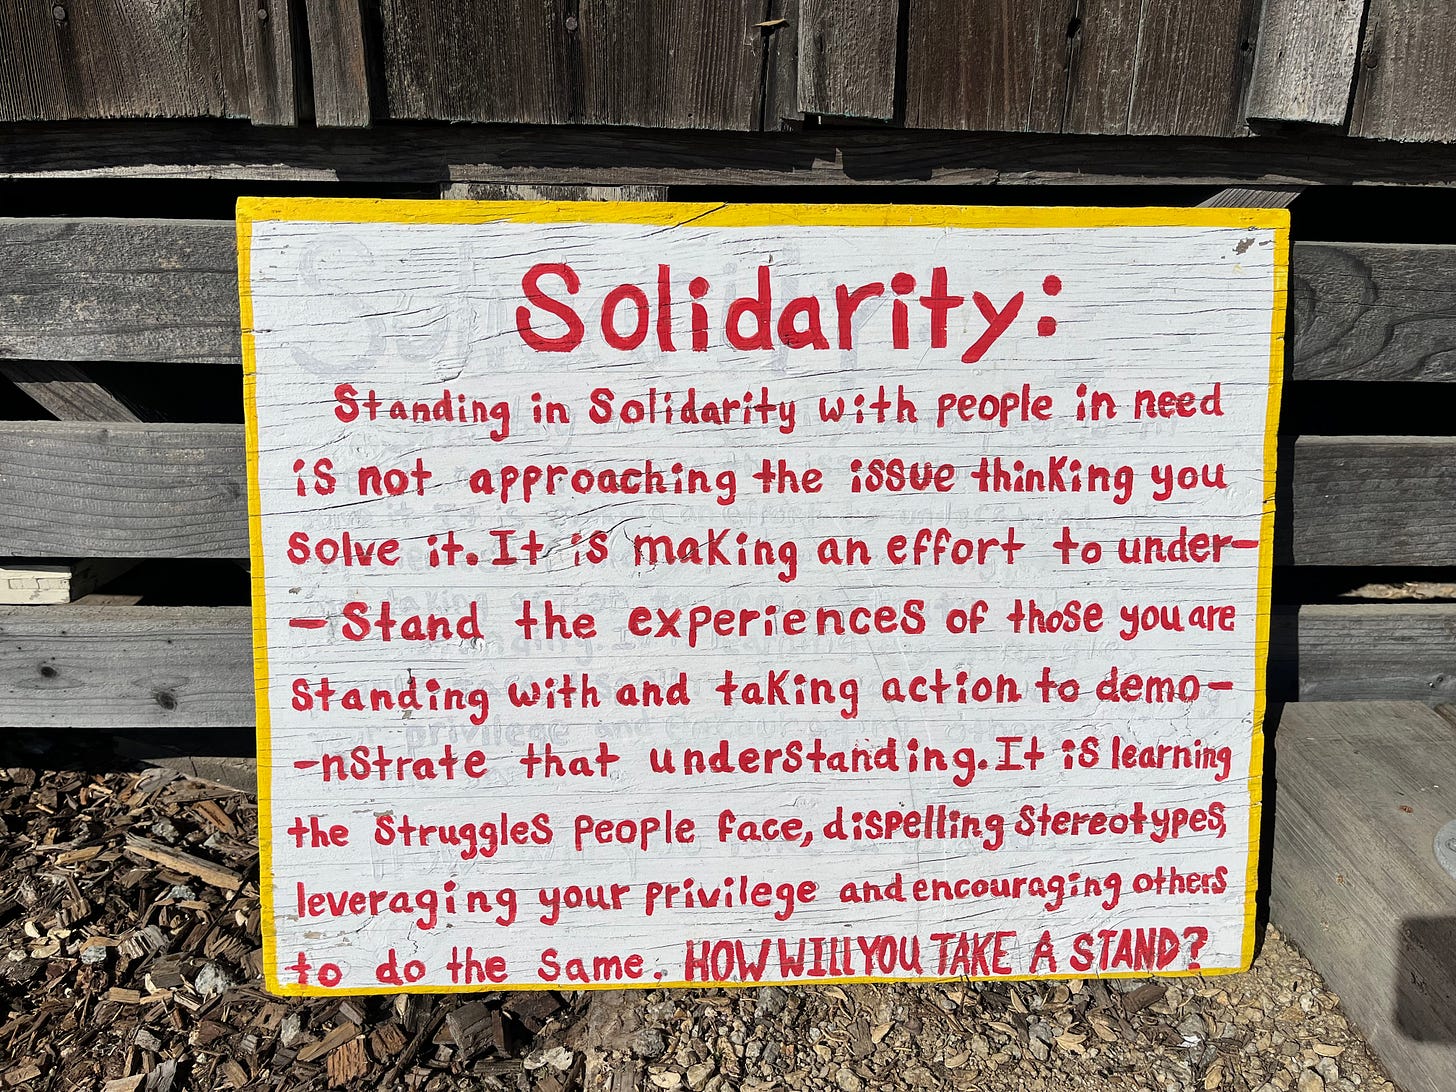 Solidarity:
Standing in Solidarity with people in need
is not approaching the issue thinking you
solve it. It is making an effort to under-
- Stand the experiences of those you are
Standing with and taking action to demo-
-nStrate that understanding. It is learning
the Struggles People face, dispelling Stereotypes,
leveraging your privilege and encouraging others
to do the Same. HOW WILL YOU TAKE A STAND?